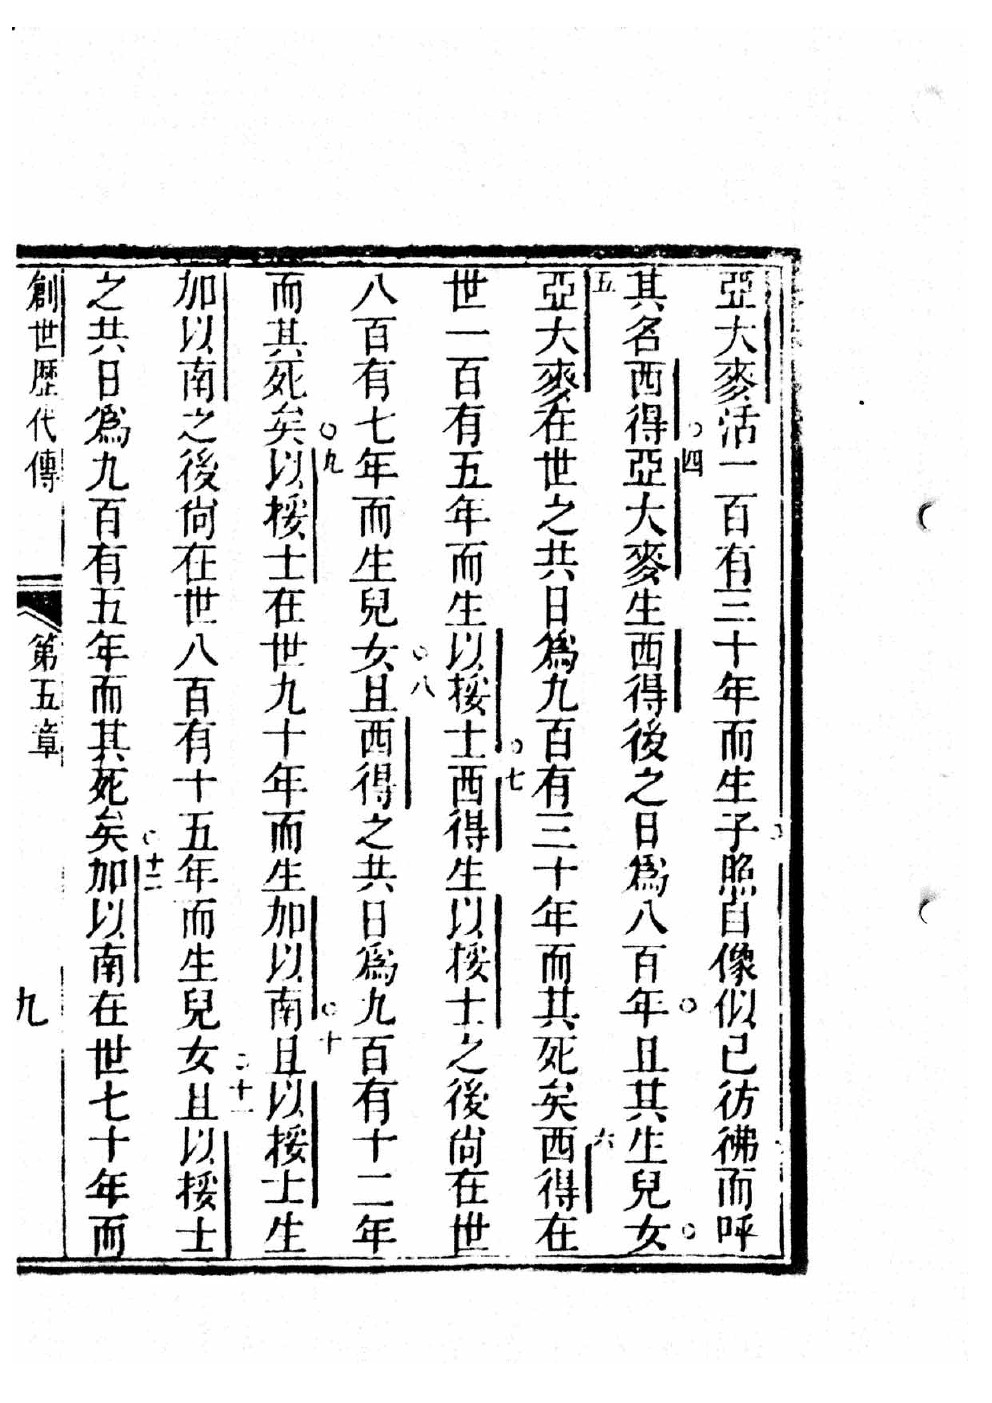 亞大麥活一百有三十年而生子照自像似己彷彿而呼
其名西得○四亞大麥生西得後之日爲八百年○且其生兒女○
五亞大麥在世之共日爲九百有三十年而其死矣六西得在
世一百有五年而生以挼士○七西得生以挼士之後尚在世
八百有七年而生兒女○八且西得之共日爲九百有十二年
而其死矣○九以挼士在世九十年而生加以南○十且以挼士生
加以南之後尚在世八百有十五年而生兒女○十一且以挼士
之共日爲九百有五年而其死矣○十二加以南在世七十年而
創世歷代傳 第五章 九